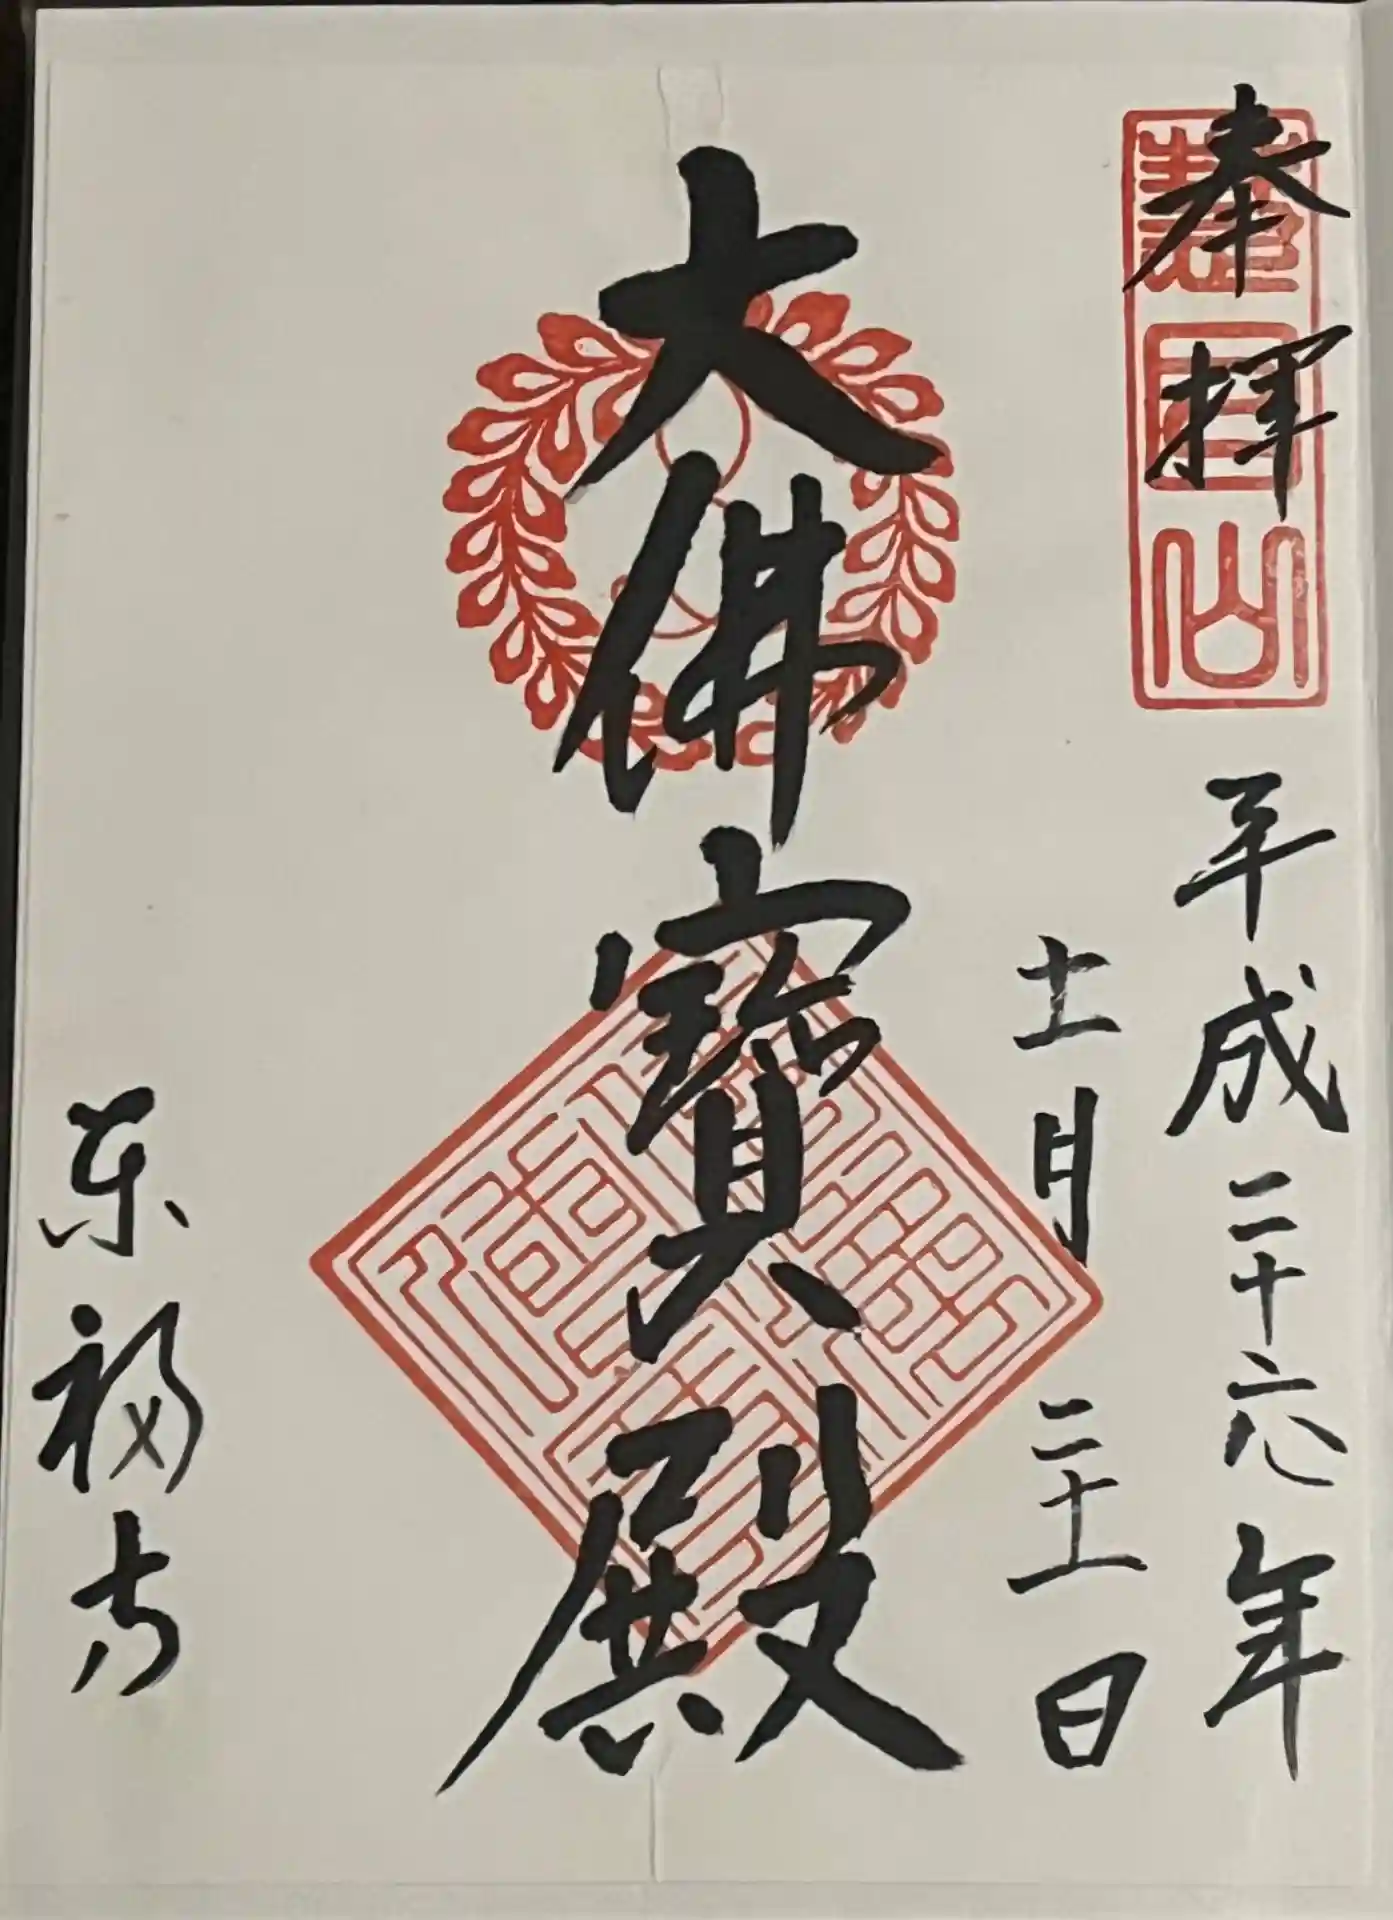 奉拝
慧日山
平成二十六年
十一月二十一日
大佛寳殿
東福寺